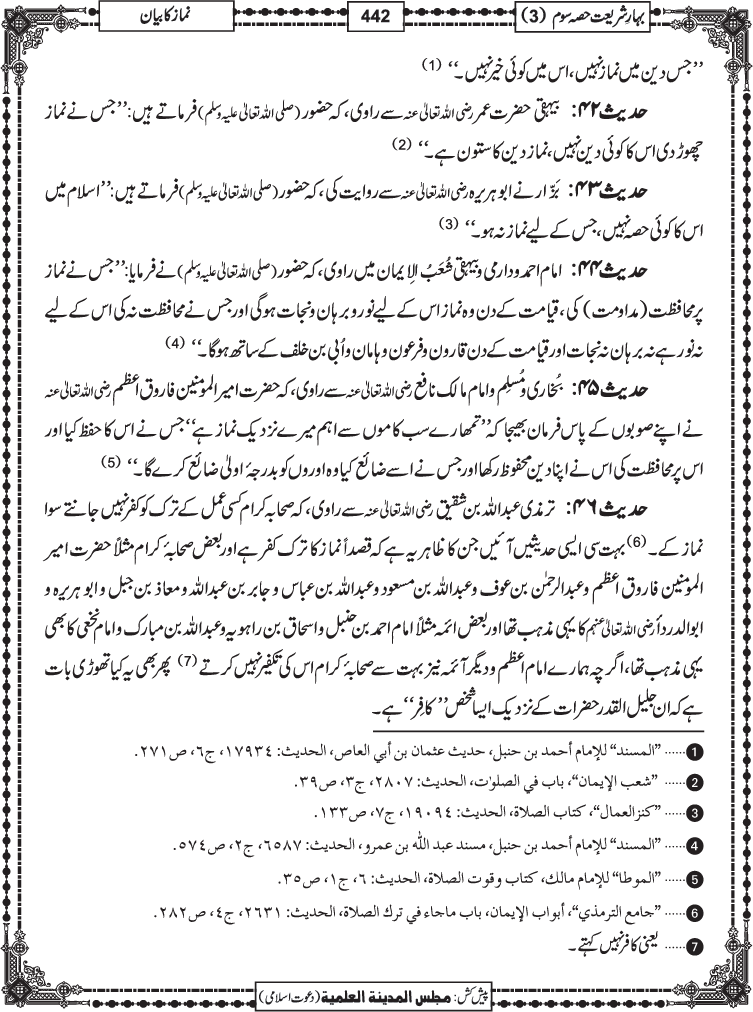 بہارِ شریعت حصہ سوم (3)
442
نماز کا بیان
’’جس دین میں نماز نہیں، اس میں کوئی خیر نہیں۔‘‘ (1)
حدیث ۴۲: بیہقی حضرت عمر رضی اللہ تعالیٰ عنہ سے راوی، کہ حضور (صلی اللہ تعالیٰ علیہ وسلم) فرماتے ہیں: ’’جس نے نماز
چھوڑ دی اس کا کوئی دین نہیں، نماز دین کا ستون ہے۔‘‘ (2)
حدیث ۴۳: بزّار نے ابوہریرہ رضی اللہ تعالیٰ عنہ سے روایت کی، کہ حضور (صلی اللہ تعالیٰ علیہ وسلم) فرماتے ہیں: ’’اسلام میں
اس کا کوئی حصہ نہیں، جس کے لیے نماز نہ ہو۔‘‘ (3)
حدیث ۴۴: امام احمد و دارمی و بیہقی شُعَبُ الْاِیمان میں راوی، کہ حضور (صلی اللہ تعالیٰ علیہ وسلم) نے فرمایا: ’’جس نے نماز
پر محافظت (مداومت) کی، قیامت کے دن وہ نماز اس کے لیے نور و برہان و نجات ہوگی اور جس نے محافظت نہ کی اس کے لیے
نہ نور ہے نہ برہان نہ نجات اور قیامت کے دن قارون و فرعون و ہامان و اُبی بن خلف کے ساتھ ہوگا۔‘‘ (4)
حدیث ۴۵: بُخاری و مُسلِم و امام مالک نافع رضی اللہ تعالیٰ عنہ سے راوی، کہ حضرت امیر المومنین فاروق اعظم رضی اللہ تعالیٰ عنہ
نے اپنے صوبوں کے پاس فرمان بھیجا کہ ’’تمھارے سب کاموں سے اہم میرے نزدیک نماز ہے‘‘ جس نے اس کا حفظ کیا اور
اس پر محافظت کی اس نے اپنا دین محفوظ رکھا اور جس نے اسے ضائع کیا وہ اوروں کو بدرجۂ اولیٰ ضائع کرے گا۔‘‘ (5)
حدیث ۴۶: ترمذی عبداللہ بن شقیق رضی اللہ تعالیٰ عنہ سے راوی، کہ صحابہ کرام کسی عمل کے ترک کو کفر نہیں جانتے سوا
نماز کے۔ (6) بہت سی ایسی حدیثیں آئیں جن کا ظاہر یہ ہے کہ قصداً نماز کا ترک کفر ہے اور بعض صحابۂ کرام مثلاً حضرت امیر
المومنین فاروق اعظم و عبدالرحمٰن بن عوف و عبداللہ بن مسعود و عبداللہ بن عباس و جابر بن عبداللہ و معاذ بن جبل و ابوہریرہ و
ابوالدرداٗ رضی اللہ تعالیٰ عنہم کا یہی مذہب تھا اور بعض ائمہ مثلاً امام احمد بن حنبل و اسحاق بن راہویہ و عبداللہ بن مبارک و امام نخعی کا بھی
یہی مذہب تھا، اگرچہ ہمارے امام اعظم و دیگر آئمہ نیز بہت سے صحابۂ کرام اس کی تکفیر نہیں کرتے (7) پھر بھی یہ کیا تھوڑی بات
ہے کہ ان جلیل القدر حضرات کے نزدیک ایسا شخص ’’کافِر‘‘ ہے۔
1 ...... ”المسند“ للإمام أحمد بن حنبل، حديث عثمان بن أبي العاص، الحديث: ١٧٩٣٤، ج٦، ص٢٧١.
2 ...... ”شعب الإيمان“، باب في الصلوٰت، الحديث: ٢٨٠٧، ج٣، ص٣٩.
3 ...... ”كنزالعمال“، كتاب الصلاة، الحديث: ١٩٠٩٤، ج٧، ص١٣٣.
4 ...... ”المسند“ للإمام أحمد بن حنبل، مسند عبد الله بن عمرو، الحديث: ٦٥٨٧، ج٢، ص٥٧٤.
5 ...... ”الموطا“ للإمام مالك، كتاب وقوت الصلاة، الحديث: ٦، ج١، ص٣٥.
6 ...... ”جامع الترمذي“، أبواب الإيمان، باب ماجاء في ترك الصلاة، الحديث: ٢٦٣١، ج٤، ص٢٨٢.
7 ...... یعنی کافر نہیں کہتے۔
پیش کش: مجلس المدينة العلمية (دعوت اسلامی)